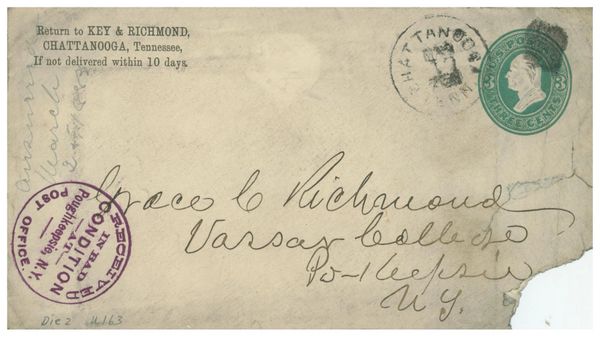 Return to KEY & RICHMOND,
CHATTANOOGA, Tennessee,
If not delivered within 10 days.
CHATTANOOGA
TENN
U.S. POSTAGE
THREE CENTS
3 3
March
RECEIVED
IN BAD
CONDITION
AT
Poughkeepsie, N.Y.
POST OFFICE.
Grace C Richmond
Vassar College
Po-Keepsie
N.Y.
Die 2 U163